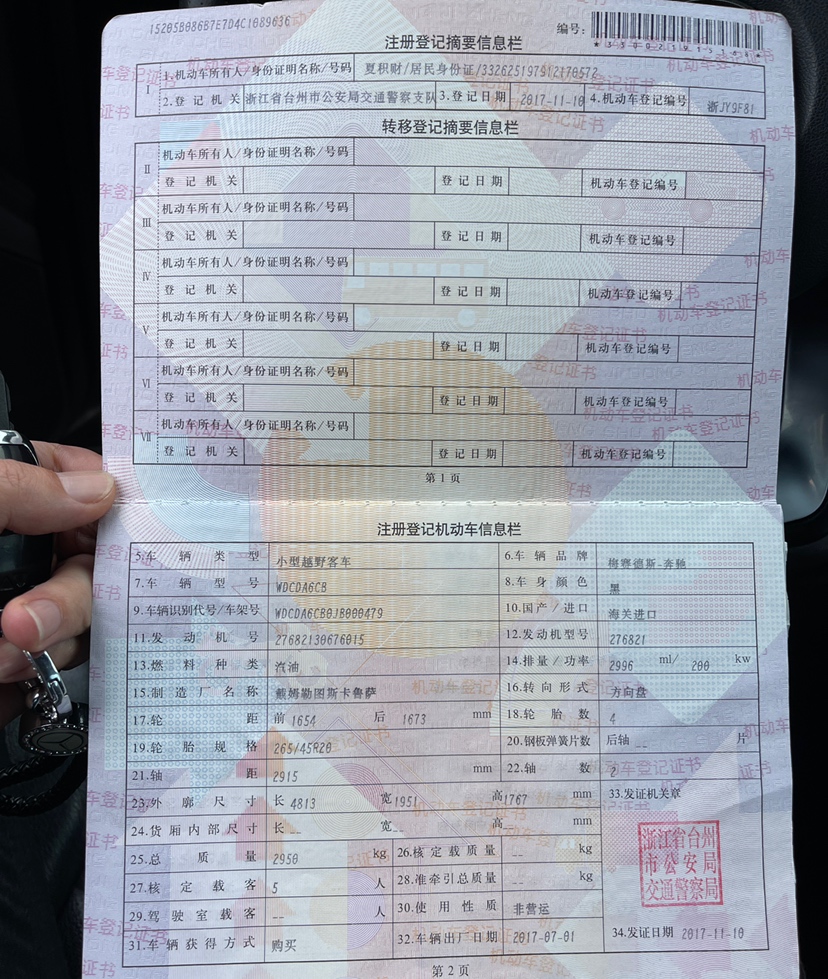 15205B086B7E7D4C1089636
编号:
注册登记摘要信息栏
I
1.机动车所有人/身份证明名称/号码 夏积财/居民身份证/332625197912170572
2.登记机关 浙江省台州市公安局交通警察支队 3.登记日期 2017-11-10 4.机动车登记编号 浙JY9F81
转移登记摘要信息栏
II
机动车所有人/身份证明名称/号码
登记机关 登记日期 机动车登记编号
III
机动车所有人/身份证明名称/号码
登记机关 登记日期 机动车登记编号
IV
机动车所有人/身份证明名称/号码
登记机关 登记日期 机动车登记编号
V
机动车所有人/身份证明名称/号码
登记机关 登记日期 机动车登记编号
VI
机动车所有人/身份证明名称/号码
登记机关 登记日期 机动车登记编号
VII
机动车所有人/身份证明名称/号码
登记机关 登记日期 机动车登记编号
第1页
注册登记机动车信息栏
5.车辆类型 小型越野客车 6.车辆品牌 梅赛德斯-奔驰
7.车辆型号 WDCDA6CB 8.车身颜色 黑
9.车辆识别代号/车架号 WDCDA6CB0JB000479 10.国产/进口 海关进口
11.发动机号 27682130676015 12.发动机型号 276821
13.燃料种类 汽油 14.排量/功率 2996 ml/ 200 kw
15.制造厂名称 戴姆勒图斯卡鲁萨 16.转向形式 方向盘
17.轮距 前 1654 后 1673 mm 18.轮胎数 4
19.轮胎规格 265/45R20 20.钢板弹簧片数 后轴 -- 片
21.轴距 2915 mm 22.轴数 2
23.外廓尺寸 长 4813 宽 1951 高 1767 mm 33.发证机关章
24.货厢内部尺寸 长 -- 宽 -- 高 mm
25.总质量 2950 kg 26.核定载质量 -- kg
浙江省台州
市公安局
交通警察局
27.核定载客 5 人 28.准牵引总质量 -- kg
29.驾驶室载客 -- 人 30.使用性质 非营运
31.车辆获得方式 购买 32.车辆出厂日期 2017-07-01 34.发证日期 2017-11-10
第2页